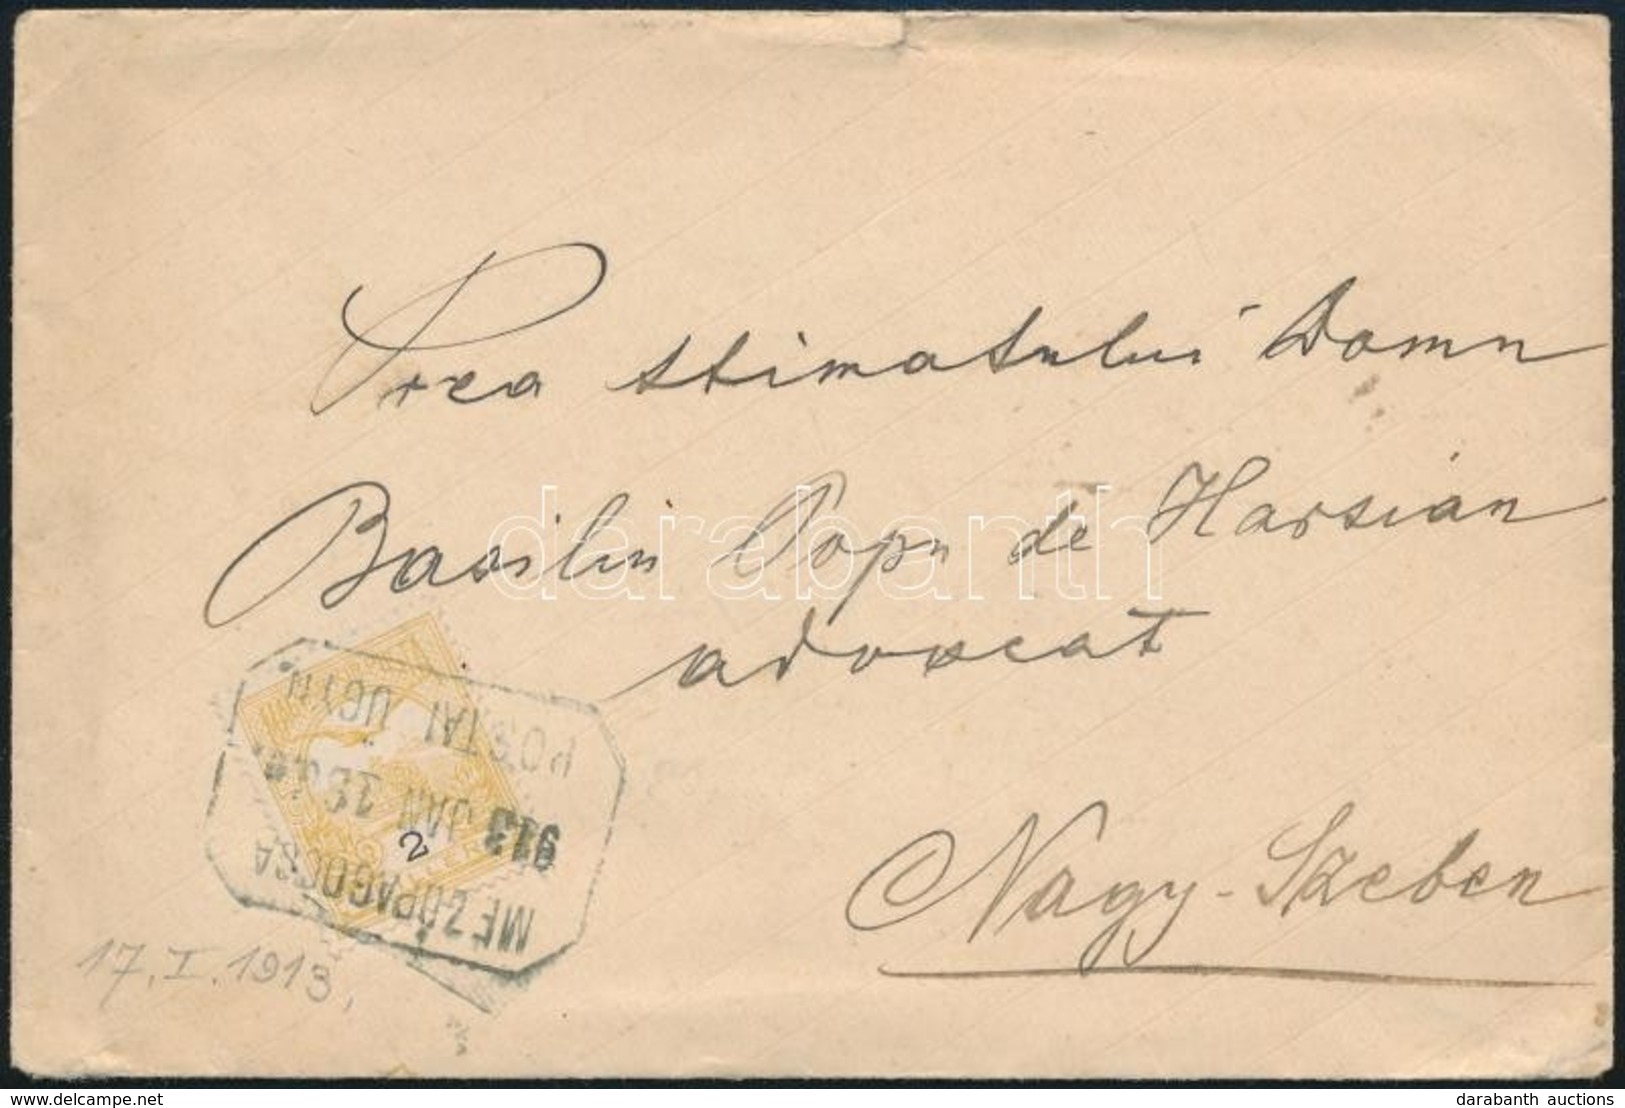 Prea stimatului Domn
Basiliu Popu de Harsian
advocat
Nagy-Szeben
darabanth
POSTAI ÜGYN.
913 JAN
MEZŐPAGOCSA
2
17. I. 1913.
delcampe.net
darabanth auctions